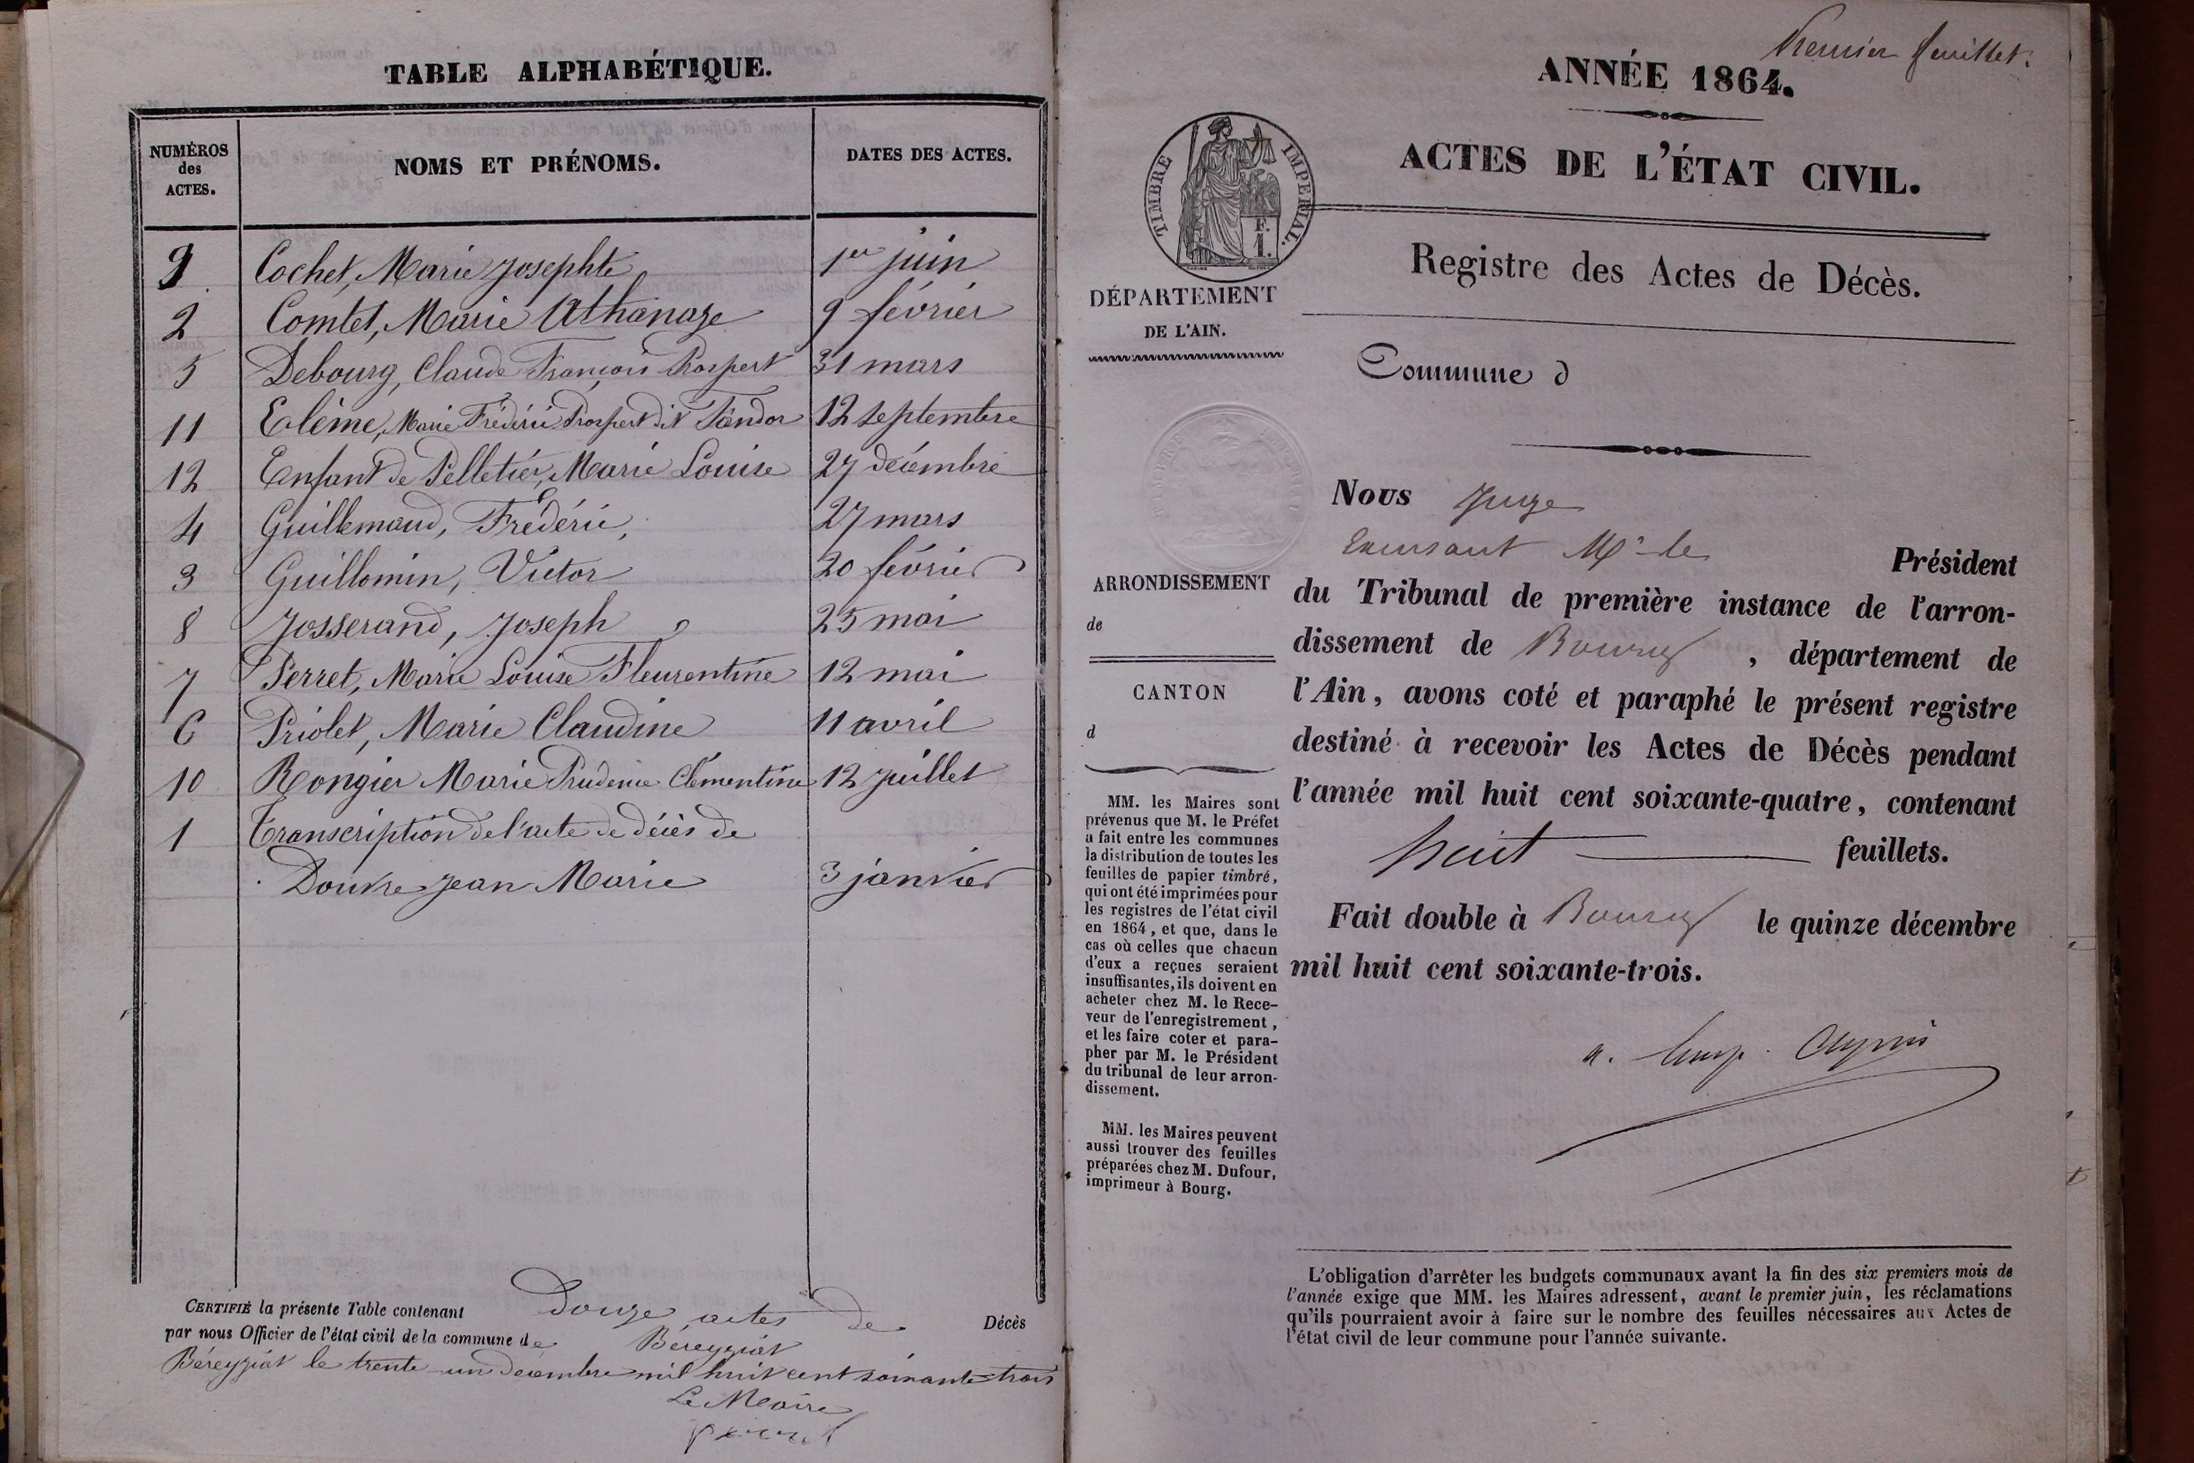 TABLE ALPHABÉTIQUE.
NUMÉROS
des
ACTES.
NOMS ET PRÉNOMS.
DATES DES ACTES.
9 Cochet, Marie Josephte 1er juin
2 Comtet, Marie Athanaze 9 février
5 Debourg, Claude François Prospert 31 mars
11 Marie Frédéric Prospert dit 12 septembre
12 Enfant de Pelletier, Marie Louise 27 décembre
4 Guillemaud, Frédéric, 27 mars
3 Guillomin, Victor 20 février
8 Josserand, Joseph 25 mai
7 Perret, Marie Louise Fleurentine 12 mai
6 Priolet, Marie Claudine 11 avril
10 Rongier Marie Prudence Clémentine 12 juillet
1 Transcription de l'acte de décès de
Douvre Jean Marie 3 janvier
CERTIFIÉ la présente Table contenant Douze actes de Décès
par nous Officier de l'état civil de la commune de Béreyziat
Béreyziat le trente un décembre mil huit cent soixante trois
Le Maire
Premier feuillet.
ANNÉE 1864.
ACTES DE L'ÉTAT CIVIL.
TIMBRE IMPERIAL.
F.
1.
Registre des Actes de Décès.
DÉPARTEMENT
DE L'AIN.
Commune d
Nous Juge
Mr le Président
du Tribunal de première instance de l'arron-
dissement de Bourg, département de
l'Ain, avons coté et paraphé le présent registre
destiné à recevoir les Actes de Décès pendant
l'année mil huit cent soixante-quatre, contenant
huit feuillets.
Fait double à Bourg le quinze décembre
mil huit cent soixante-trois.
ARRONDISSEMENT
de
CANTON
d
MM. les Maires sont
prévenus que M. le Préfet
a fait entre les communes
la distribution de toutes les
feuilles de papier timbré,
qui ont été imprimées pour
les registres de l'état civil
en 1864, et que, dans le
cas où celles que chacun
d'eux a reçues seraient
insuffisantes, ils doivent en
acheter chez M. le Rece-
veur de l'enregistrement,
et les faire coter et para-
pher par M. le Président
du tribunal de leur arron-
dissement.
MM. les Maires peuvent
aussi trouver des feuilles
préparées chez M. Dufour,
imprimeur à Bourg.
L'obligation d'arrêter les budgets communaux avant la fin des six premiers mois de
l'année exige que MM. les Maires adressent, avant le premier juin, les réclamations
qu'ils pourraient avoir à faire sur le nombre des feuilles nécessaires aux Actes de
l'état civil de leur commune pour l'année suivante.